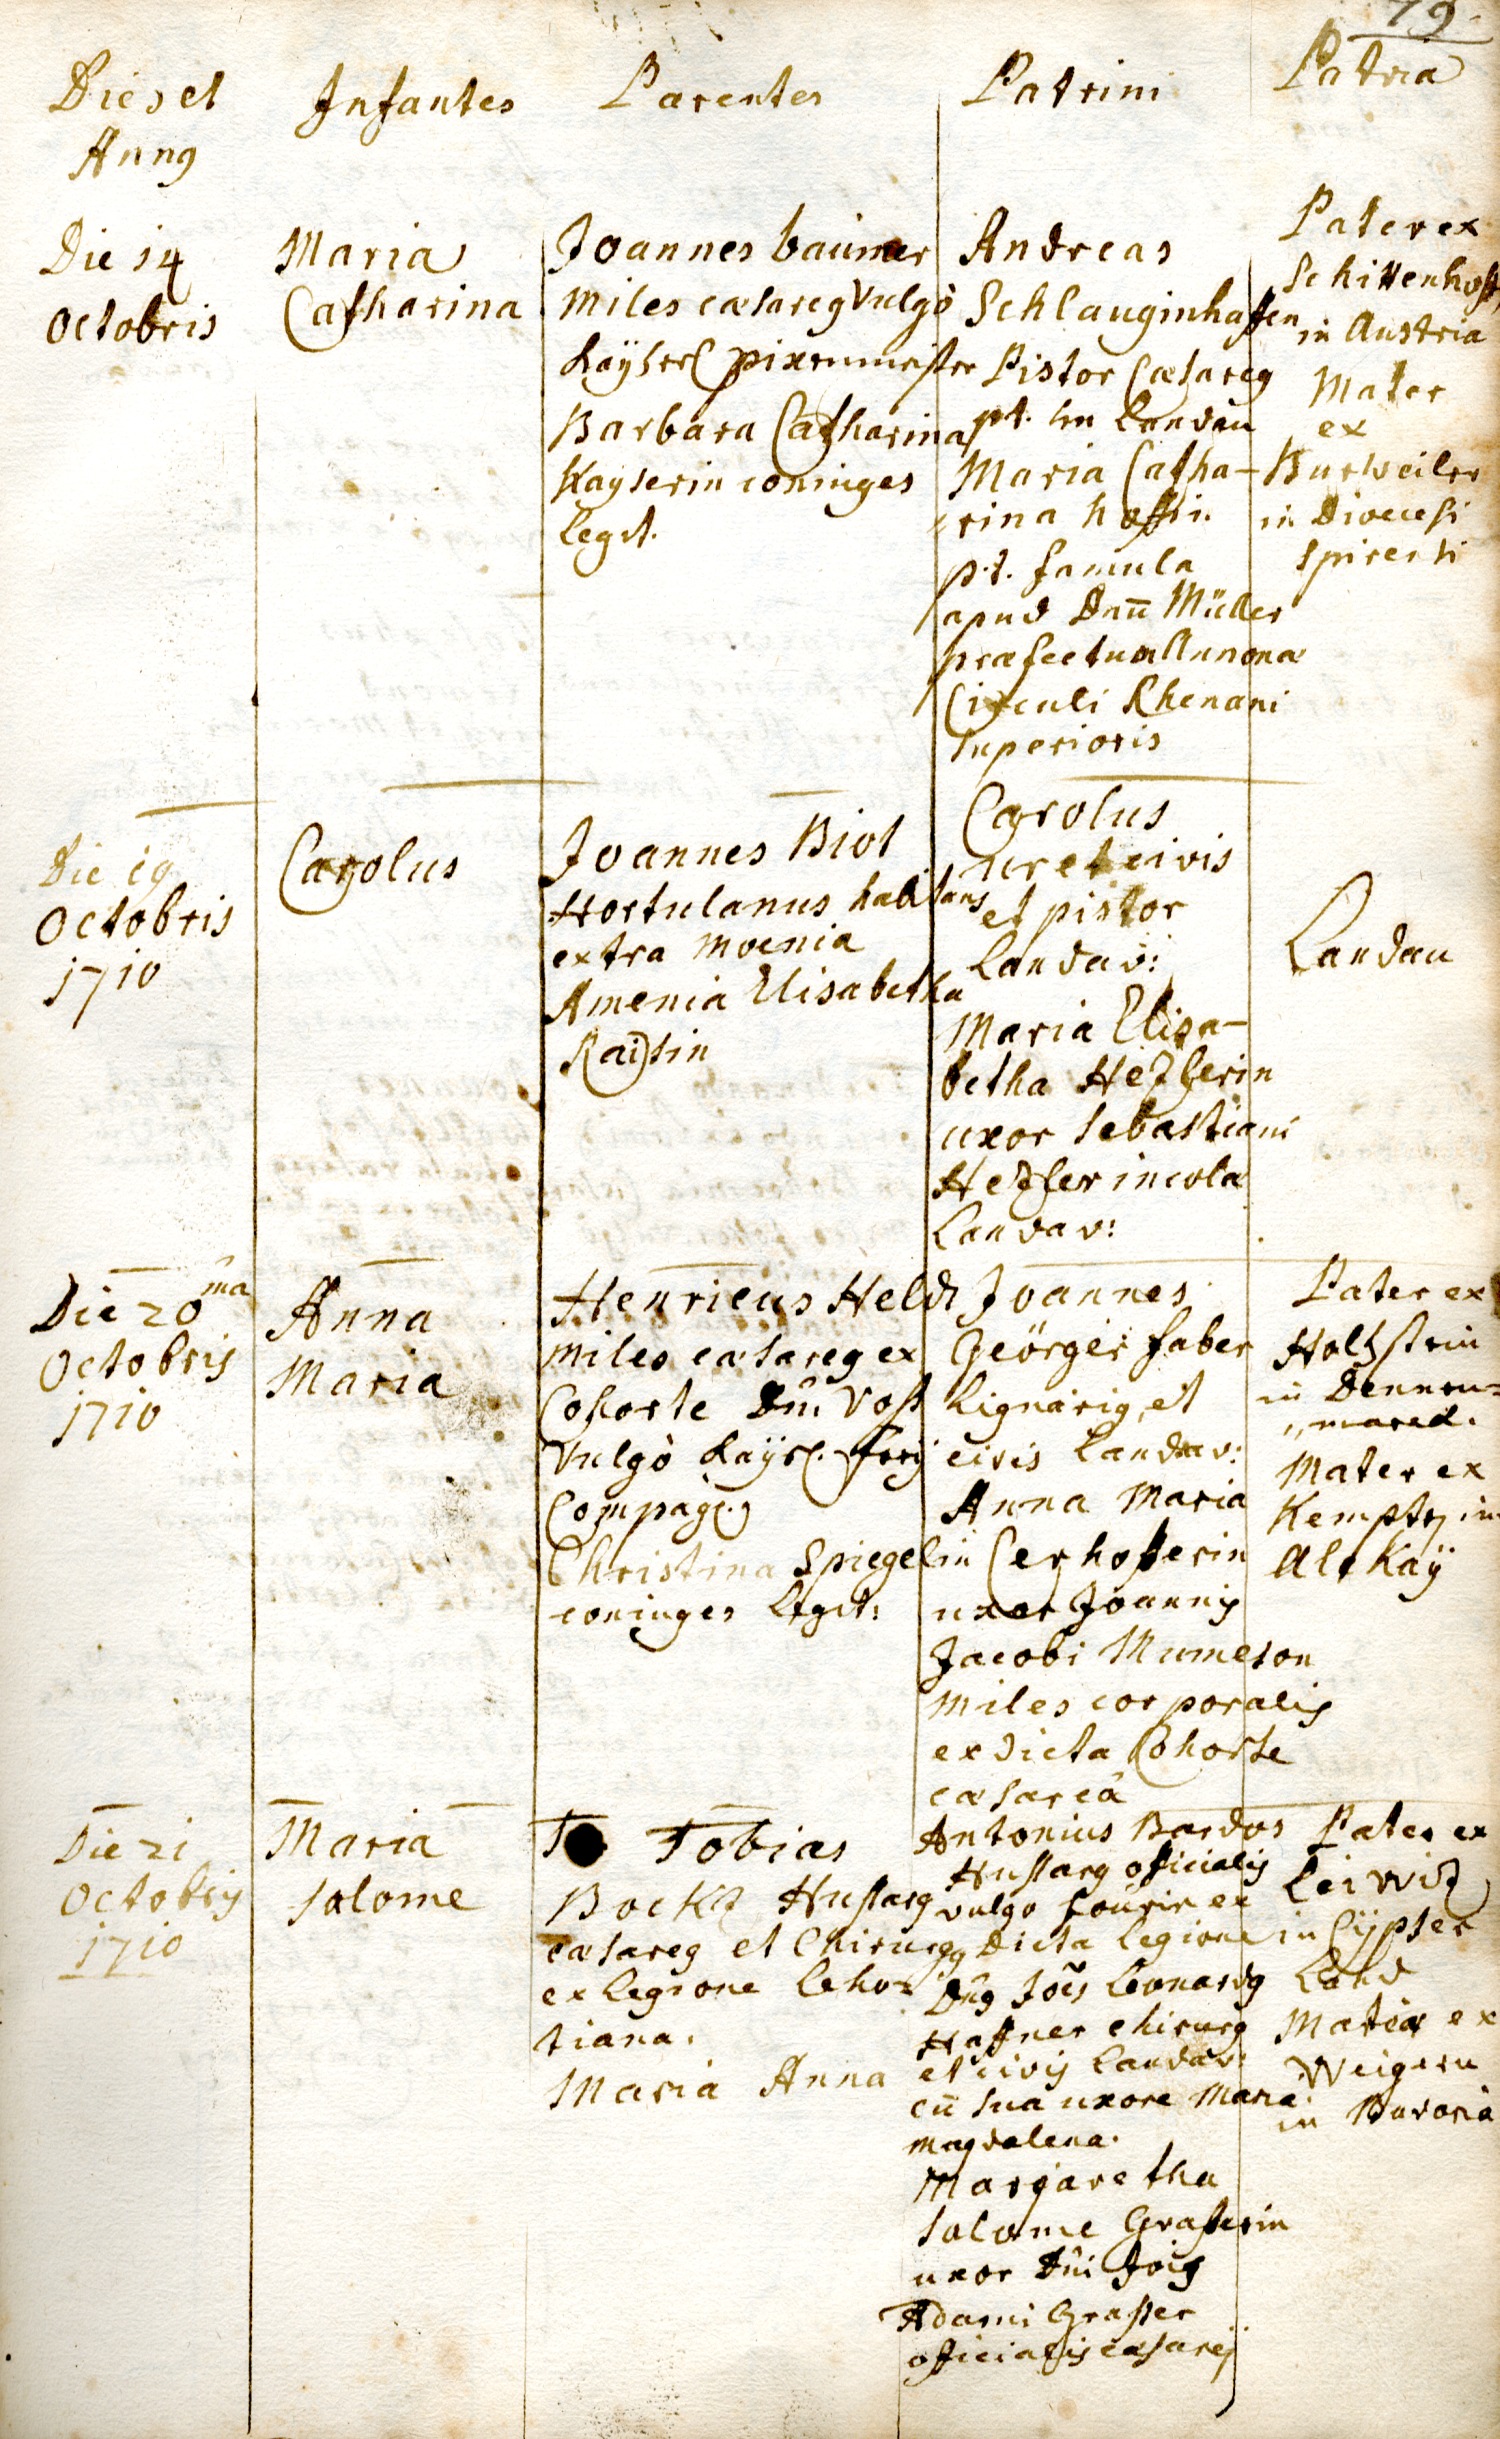 79.
Dies et
Annq
Infantes
Parentes
Patrini
Patria
Die 14
Octobris
Maria
Catharina
Joannes baumer
Miles cæsareq Vulgò
Kaÿserl pixenmeister
Barbara Catharina
Kayserin coniuges
legit.
Andreas
Schlauginhaffen
Pistor Cæsareq
pt. in Landau
Maria Catha-
rina hoffin
p.t. famula
apud Dnn Müller
præfectum Annonæ
Circuli Rhenani
Superioris
Pater ex
Schittenhoff
in Austria
Mater
ex
Burweiler
in Dioecesi
Spirensi
Die 19
Octobris
1710
Carolus
Joannes Biol
Hortulanus habitans
extra moenia
Amenia Elisabetha
Carolus
civis
et pistor
Landav:
Maria Elisa-
betha Hetzlerin
uxor Sebastiani
Hetzler incola
Landav:
Landau
Die 20ma
Octobris
1710
Anna
Maria
Henricus Heldt
miles cæsareq ex
Cohorte Dni Voss
Vulgò Kaÿsl. freÿ
Compagn.
Christina Spiegelin
coniuges legit:
Joannes
Geörger faber
lignariq, et
civis Landav:
Anna Maria
Cerhofferin
uxor Joannis
Jacobi Mumeson
Miles corporalis
ex dicta Cohorte
cæsareâ
Pater ex
Holtzstein
in Dennen=
"marck.
Mater ex
Kempten in
Algkaÿ
Die 21
Octobris
1710
Maria
Salome
Tobias
Bockz Hussarq
cæsareq et Chirurgq
ex legione leho=
tiana.
Maria Anna
Antonius Bardos
Hussarq officialis
vulgo fourir ex
dicta legione
Dnq Joës Leonardq
Haffner chirurg
et civis Landav:
cū sua uxore Maria
magdalena.
Margaretha
Salome Grasserin
uxor Dni Jois
Adami Grasser
officialis cæsarej
Pater ex
Leiwitz
in Cÿpser
Land
Mater ex
Weigern
in Bavaria